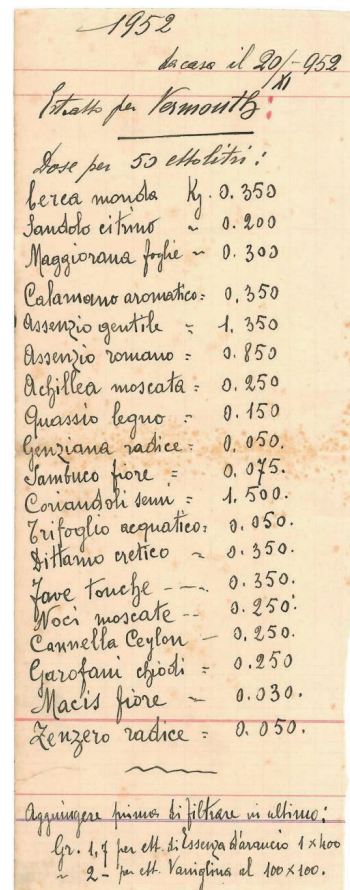 1952
da casa il 20/XI-952
Estratto per Vermouth:
Dose per 50 ettolitri:
Cerea monda Kg. 0.350
Sandolo citrino ~ 0.200
Maggiorana foglie ~ 0.300
Calamano aromatico = 0,350
Assenzio gentile = 1,350
Assenzio romano = 0.850
Achillea moscata = 0.250
Quassio legno = 0.150
Genziana radice = 0,050.
Sambuco fiore = 0.075.
Coriandoli semi = 1.500.
Trifoglio acquatico = 0.050.
Dittamo cretico ~ 0.350.
Fave tonche --- 0.350.
Noci moscate -- 0.250.
Cannella Ceylon - 0,250.
Garofani chiodi = 0.250
Macis fiore ~ 0.030.
Zenzero radice = 0.050.
Aggiungere prima di filtrare in ultimo:
Gr. 1,7 per ett. di Essenza d'arancio 1 x 400
~ 2- per ett. Vaniglina al 100 x 100.